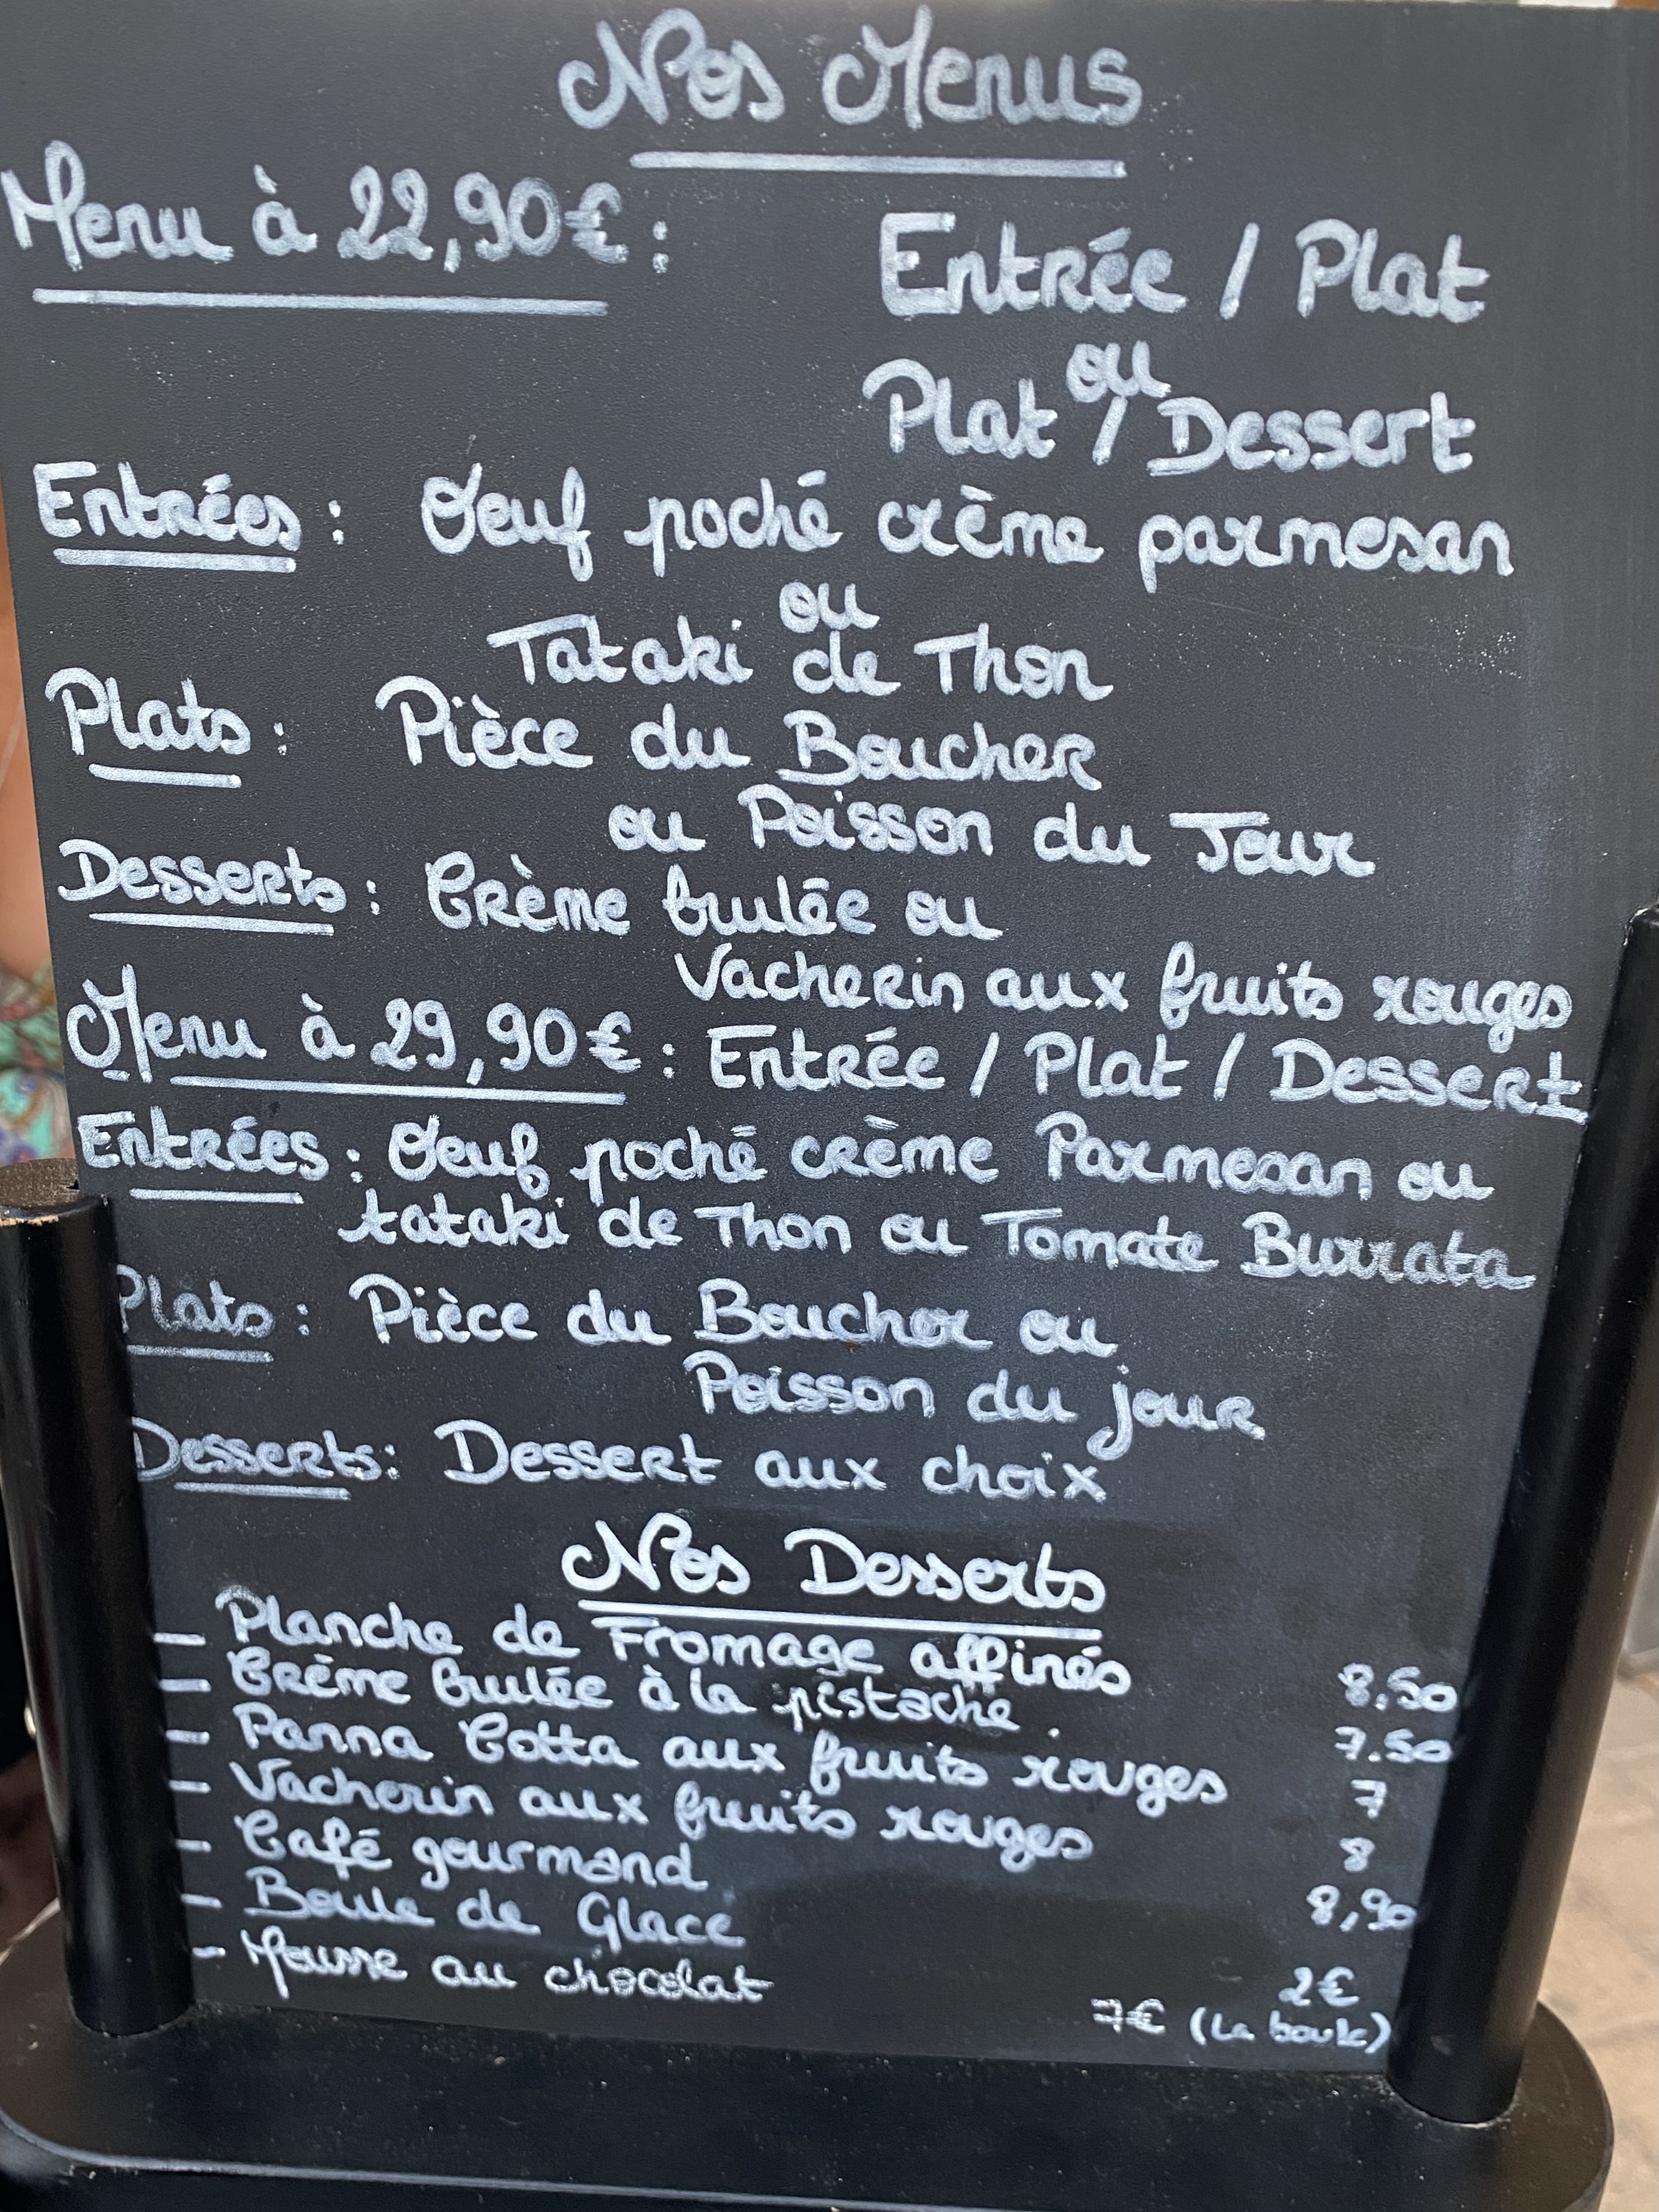 Nos Menus
Menu à 22,90€ : Entrée / Plat
ou
Plat / Dessert
Entrées : Oeuf poché crème parmesan
ou
Tataki de Thon
Plats : Pièce du Boucher
ou Poisson du Jour
Desserts : Crème brulée ou
Vacherin aux fruits rouges
Menu à 29,90€ : Entrée / Plat / Dessert
Entrées : Oeuf poché crème Parmesan ou
tataki de Thon ou Tomate Burrata
Plats : Pièce du Boucher ou
Poisson du jour
Desserts : Dessert aux choix
Nos Desserts
– Planche de Fromage affinés 8,50
– Crème brulée à la pistache . 7.50
– Panna Cotta aux fruits rouges 7
– Vacherin aux fruits rouges 8
– Café gourmand 8,90
– Boule de Glace 2€
(La boule)
– Mousse au chocolat 7€